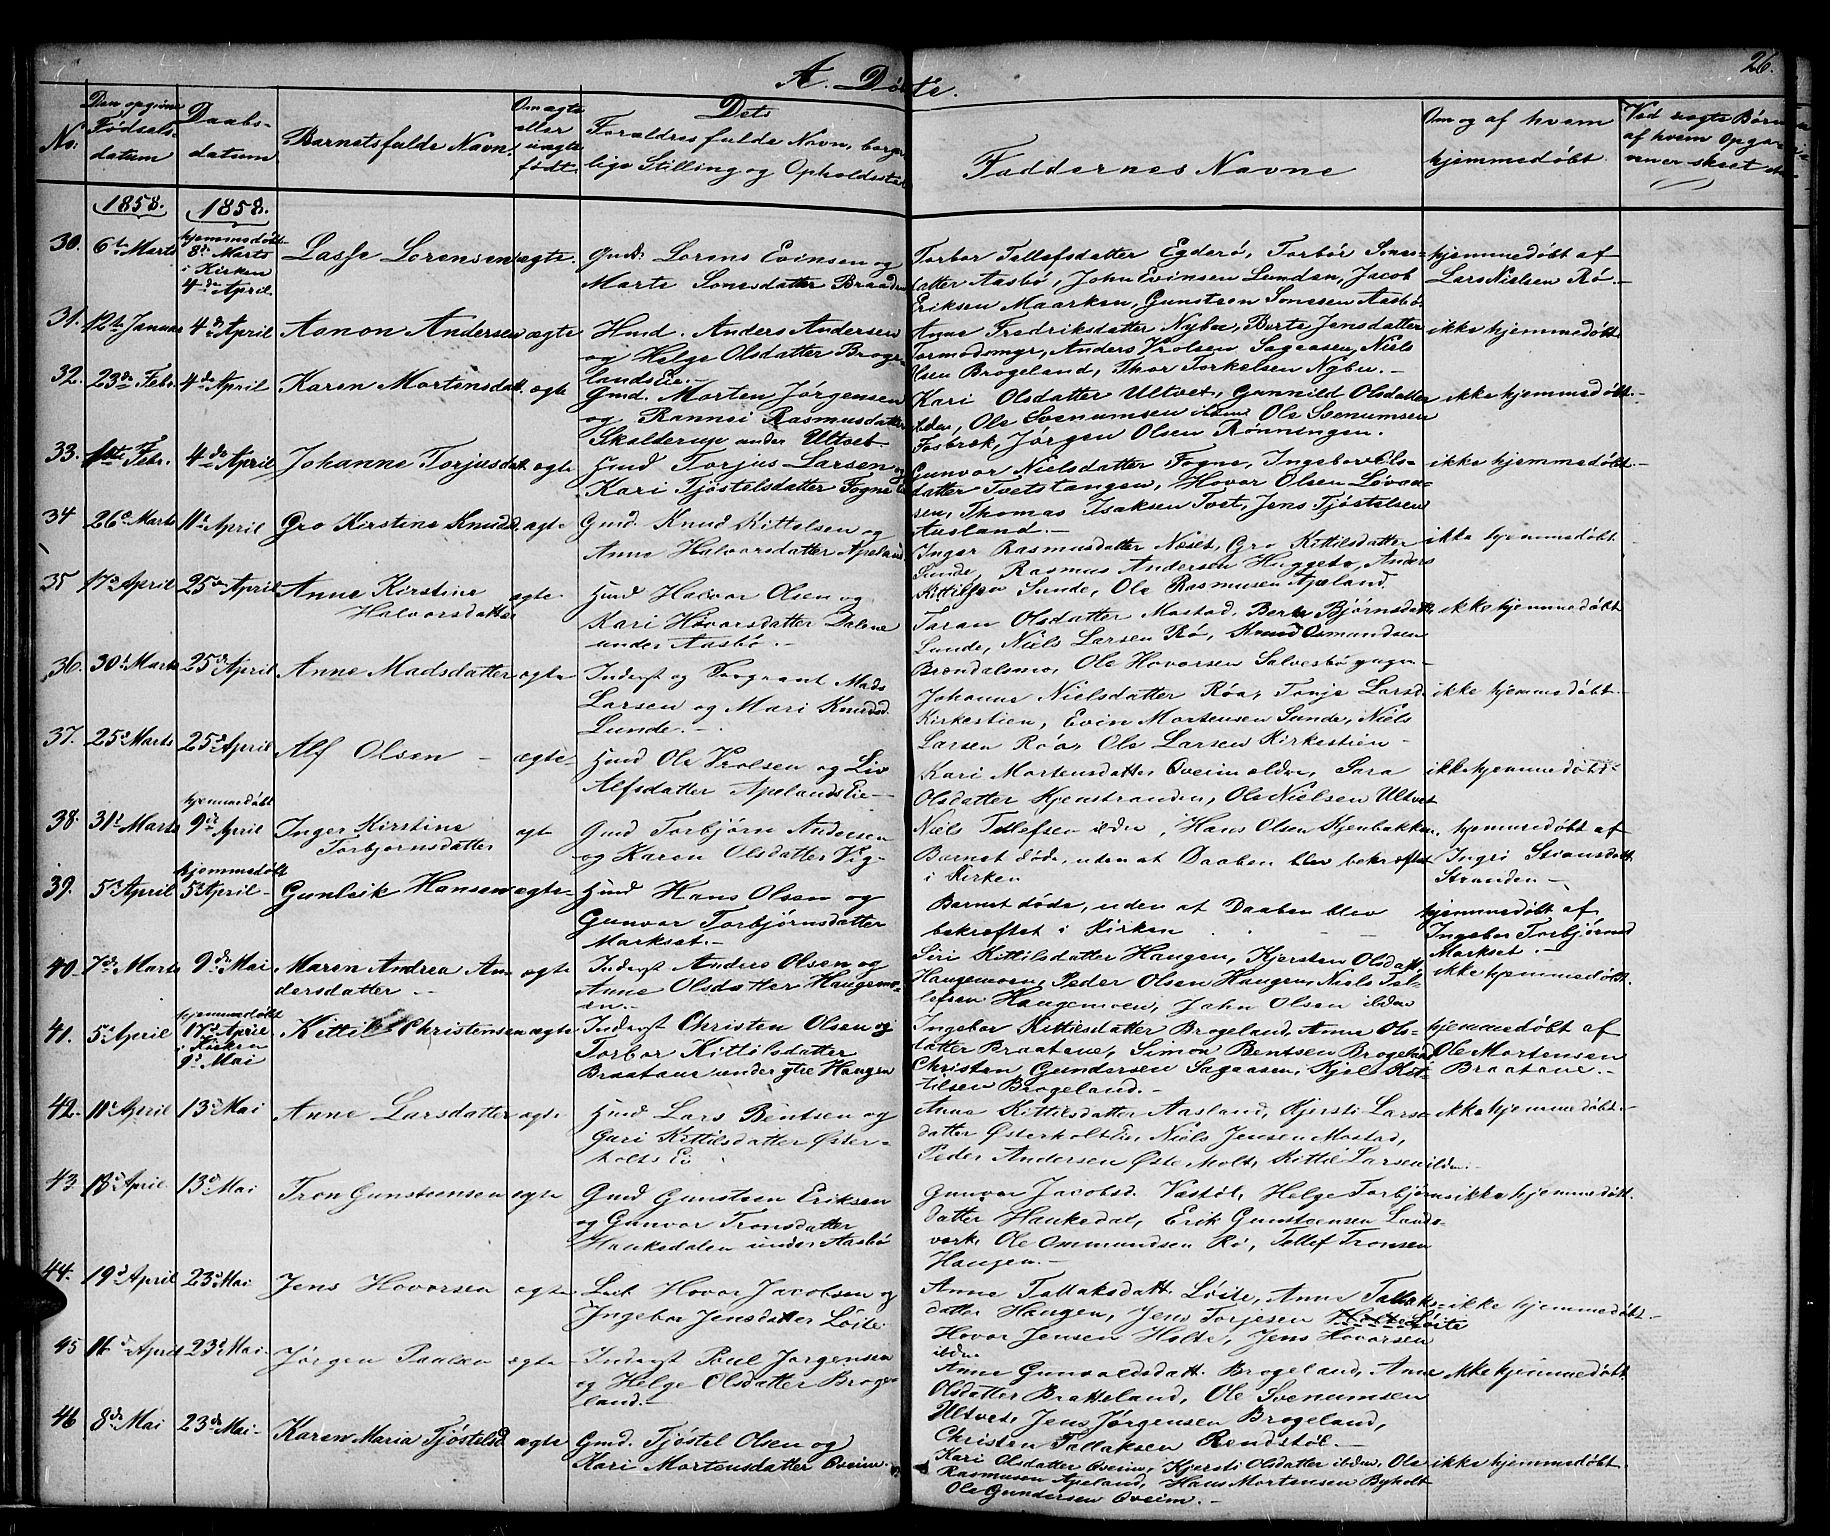 A. Døbte.
26.
No.
Den opgivne Fødsels-datum
Daabs-datum
Barnets fulde Navn.
Om ægte eller uægte født.
Dets Forældres fulde Navn, borgerlige Stilling og Opholdssted
Faddernes Navne
Om og af hvem hjemmedøbt.
Ved uægte Børn af hvem Opgaven er skeet
1858. 1858.
30. 6te Marts hjemmedøbt 8de Marts i Kirken 4de April Lasse Lorensen ægte. Gmd. Lorens Evinsen og Marte Sonesdatter Braaden
Torbor Tellefsdatter Egderø, Torbør Sones-
datter Aasbø, John Evinsen Lunden, Jacob
Eriksen Maarken, Gunsten Sonesen Aasbø
hjemmedøbt af Lars Nielsen Rø.
31. 12te Januar 4de April Aanon Andersen ægte Hmd. Anders Andersen og Helge Olsdatter Brogelands Eie.
Anne Fredriksdatter Nybu, Berte Jensdatter
Tormodsmyr, Anders Vrolsen Sagaasen, Niels
Olsen Brogeland, Thor Torkelsen Nybu.
ikke hjemmedøbt
32. 23de Febr. 4de April Karen Mortensdatt. ægte Gmd. Morten Jørgensen og Rannei Rasmusdatter Skolderup under Ultvet
Kari Olsdatter Ultvet, Gunnild Olsdatter
ildm, Ole Svenumsen ildm Ole Svenumsen
Fosbræk, Jørgen Olsen Rønningen.
ikke hjemmedøbt.
33. 1ste Febr. 4de April Johanne Torjusdat. ægte Hmd Torjus Larsen og Kari Tjøstelsdatter Fogne
Gunvor Nielsdatter Fogne, Ingebor Nils-
datter Tvetstangen, Hovor Olsen Løvaa-
sen, Thomas Isaksen Tvet, Jens Tjøstelsen
Ausland.
ikke hjemmedøbt.
34 26de Marts 11te April Gro Kirstine Knudsd. ægte Gmd. Knud Kittelsen og Anne Halvorsdatter Apeland
Inger Rasmusdatter Næset, Gro Kittilsdatter
Sunde, Rasmus Andersen Huggeto, Anders
Kittilsen Sunde, Ole Rasmusen Apeland.
ikke hjemmedøbt
35 17de April 25de April Anne Kirstine Halvorsdatter ægte Hmd Halvor Olsen og Kari Hovorsdatter Dalene under Aasbø.
Taran Olsdatter Mostad, Berte Bjørnsdatt.
Sunde, Niels Larsen Rø, Knud Osmundsen
Brændalsmo, Ole Hovorsen Salvesbøgagn
ikke hjemmedøbt
36. 30te Marts 25de April Anne Madsdatter ægte Inderst og Forgrant Mads Larsen og Mari Knudsd. Lunde.
Johanne Nielsdatter Røa, Tonje Larsd.
Kirkestien, Evin Mortensen Sunde, Niels
Larsen Røa, Ole Larsen Kirkestien
ikke hjemmedøbt
37. 25de Marts 25de April Alf Olsen ægte Hmd Ole Vrolsen og Liv Alfsdatter Apelands Eie
Kari Mortensdatter Oveim ældre, Sara
Olsdatter Kjenstranden, Ole Nielsen Ultvet
Niels Tellefsen ildm, Hans Olsen Kjenbakken.
ikke hjemmedøbt
38. 31te Marts hjemmedøbt 9de April Inger Kirstine Torbjørnsdatter ægt Gmd Torbjørn Andersen og Karen Olsdatter Vig
Barnet døde, uden at Daaben blev bekræftet
i Kirken
hjemmedøbt af Ingri Stiansdatt. Stranden
39. 5te April hjemmedøbt 5te April Gunleik Hansen ægte Hmd Hans Olsen og Gunvor Torbjørnsdatter Markset.
Barnet døde, uden at Daaben blev
bekræftet i Kirken
hjemmedøbt af Ingebor Torbjørnsd Markset.
40. 7de Marts 9de Mai Maren Andrea Andersdatter ægte Inderst Anders Olsen og Anne Olsdatter Haugemoen
Siri Kittilsdatter Haugen, Kjersten Olsdatt.
Haugemoen, Peder Olsen Haugen, Niels Tel-
lefsen Haugemoen, John Olsen ildm
ikke hjemmedøbt
41. 5te April hjemmedøbt 17de April i Kirken 9de Mai Kittil Christensen ægte Inderst Christen Olsen og Torbor Kittilsdatter Braatane under ytre Haugen
Ingebor Kittilsdatter Brogeland, Anne Ols-
datter Braatane, Simon Bentsen Brogeland
Christen Gundersen Sagaasen, Kjel Kit-
tilsen Brogeland.
hjemmedøbt af Ole Mortensen Braatane.
42. 11te April 13de Mai Anne Larsdatter ægte Hmd Lars Bentsen og Guri Kittilsdatter Østerholts Ei
Anne Kittilsdatter Aasland, Kjersti Lars-
datter Østerholt Ei, Niels Jensen Mostad,
Peder Andersen Østerholt, Kittil Larsen ildm.
ikke hjemmedøbt
43. 18de April 13de Mai Tron Gunstensen ægte Gmd Gunsten Eriksen og Gunvor Tronsdatter Hauksdalen under Aasbø
Gunvor Jacobsd. Vastøl, Helge Torbjørns
datter Haukedal, Erik Gunstensen Lands-
værk, Ole Ommundsen Rø, Tellef Tronsen
Haugen.
ikke hjemmedøbt.
44. 19de April 23de Mai Jens Hovorsen ægte Leil Hovor Jacobsen og Ingebor Jensdatter Løite
Anne Tallaksdatt. Løite, Anne Tallaks-
datter Haugen, Jens Torjesen Løite
Hovor Jensen Holte, Jens Hovorsen
ildm
ikke hjemmedøbt.
45 16de April 23de Mai Jørgen Paulsen ægte Inderst Poul Jørgensen og Helge Olsdatter Brogeland.
Anne Gunvaldsdatt. Brogeland, Anne
Olsdatter Bratteland, Ole Svenumsen
Ultvet, Jens Jørgensen Brogeland,
Christen Tallaksen Rendstøl.
ikke hjemmedøbt
46 8de Mai 23de Mai Karen Maria Tjøstelsd ægte Gmd. Tjøstel Olsen og Kari Mortensdatter Oveim.
Kari Olsdatter Oveim, Kjersti Olsdatter ildm, Ole
Rasmusen Apeland, Hans Mortensen Byholt
Ole Gundersen Oveim.
ikke hjemmedøbt.